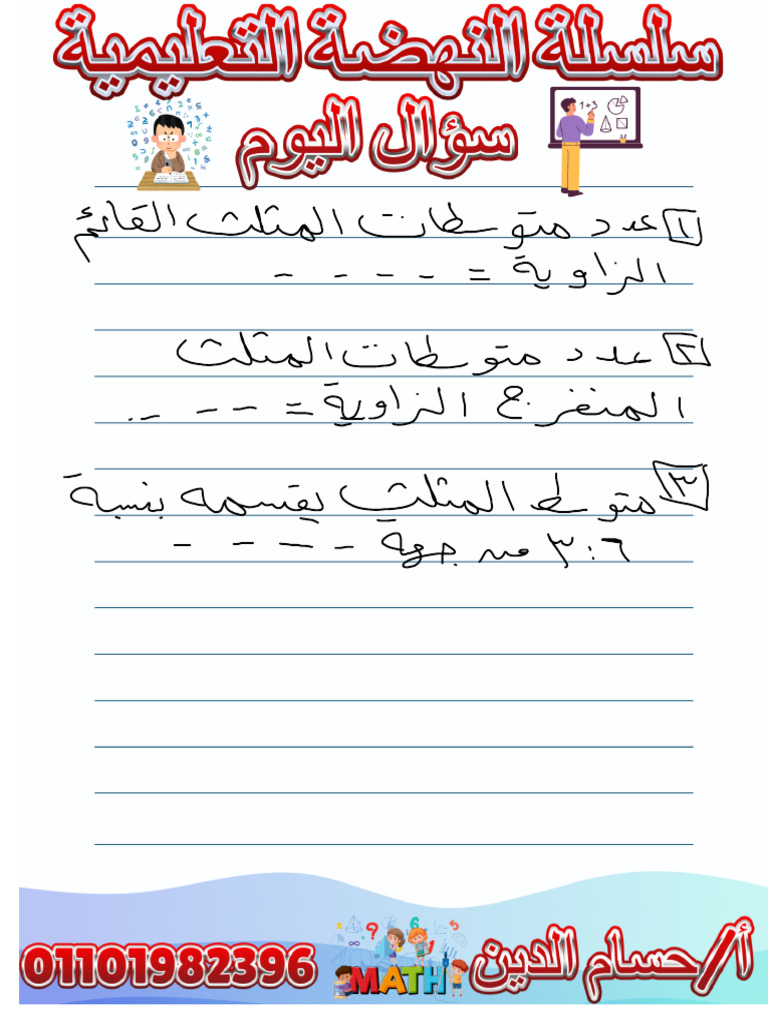 سلسلة النهضة التعليمية
سؤال اليوم
١ عدد متوسطات المثلث القائم
الزاوية = - - - -
٢ عدد متوسطات المثلث
المنفرج الزاوية = - - - -
٣ متوسط المثلث يقسمه بنسبة
٣:٦ من جهة - - - -
أ/حسام الدين
MATH
01101982396